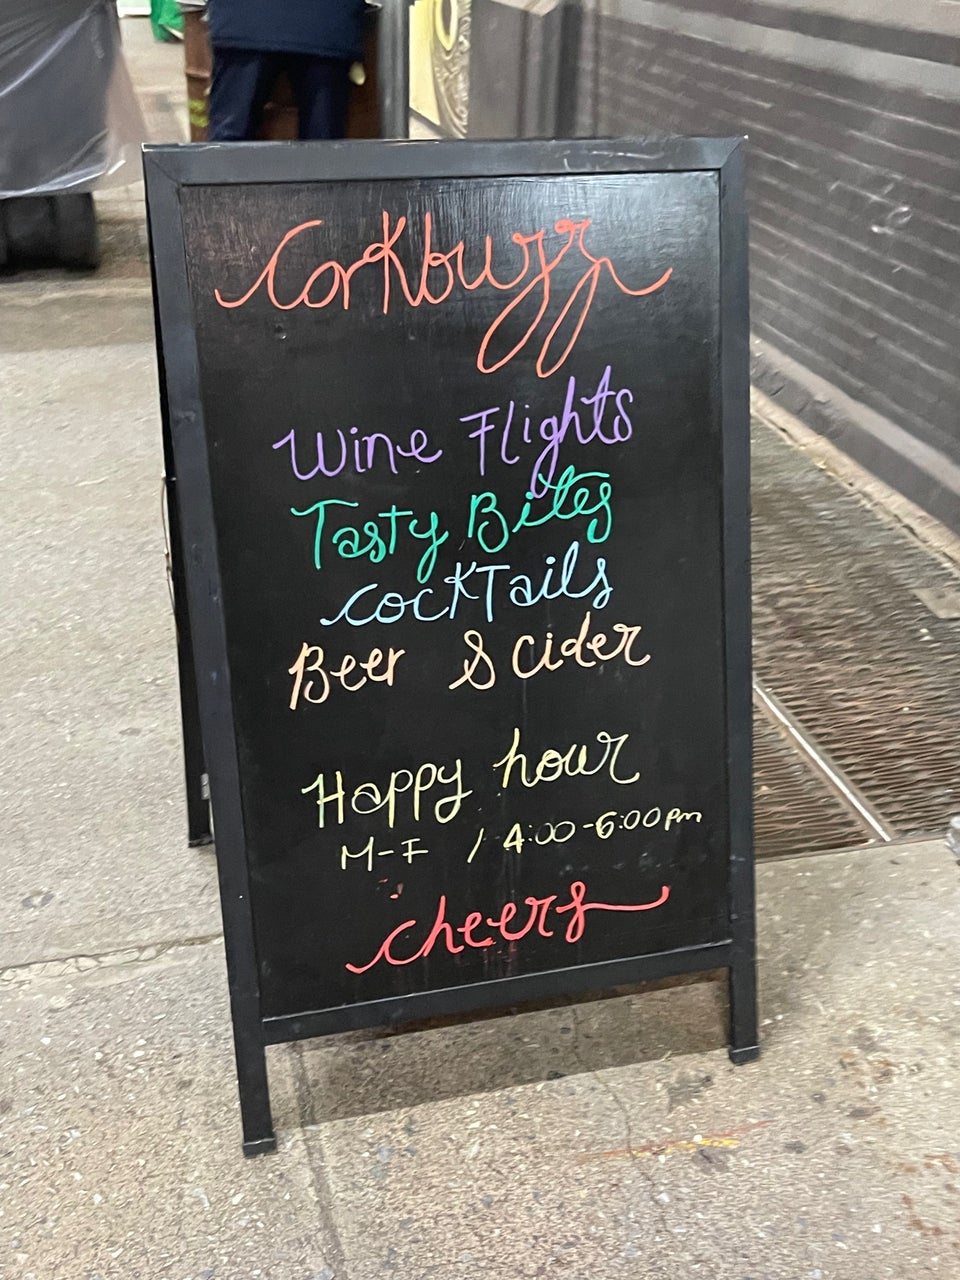 Corkbuzz
Wine Flights
Tasty Bites
CockTails
Beer & Cider
Happy hour
M-F / 4:00-6:00pm
cheers